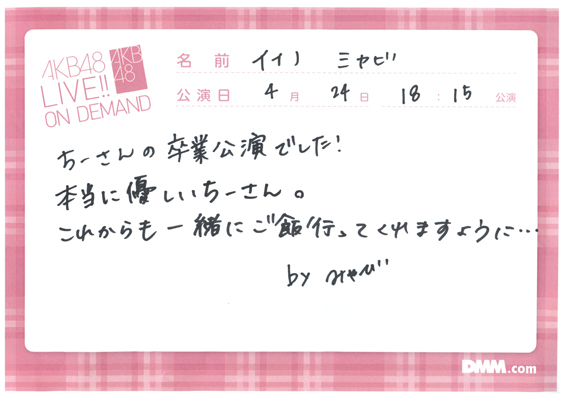 AKB48
LIVE!!
ON DEMAND
AKB
48
名前 イイノ ミヤビ
公演日 4月 24日 18:15 公演
ちーさんの卒業公演でした!
本当に優しいちーさん。
これからも一緒にご飯行ってくれますように…
by みやび
DMM.com